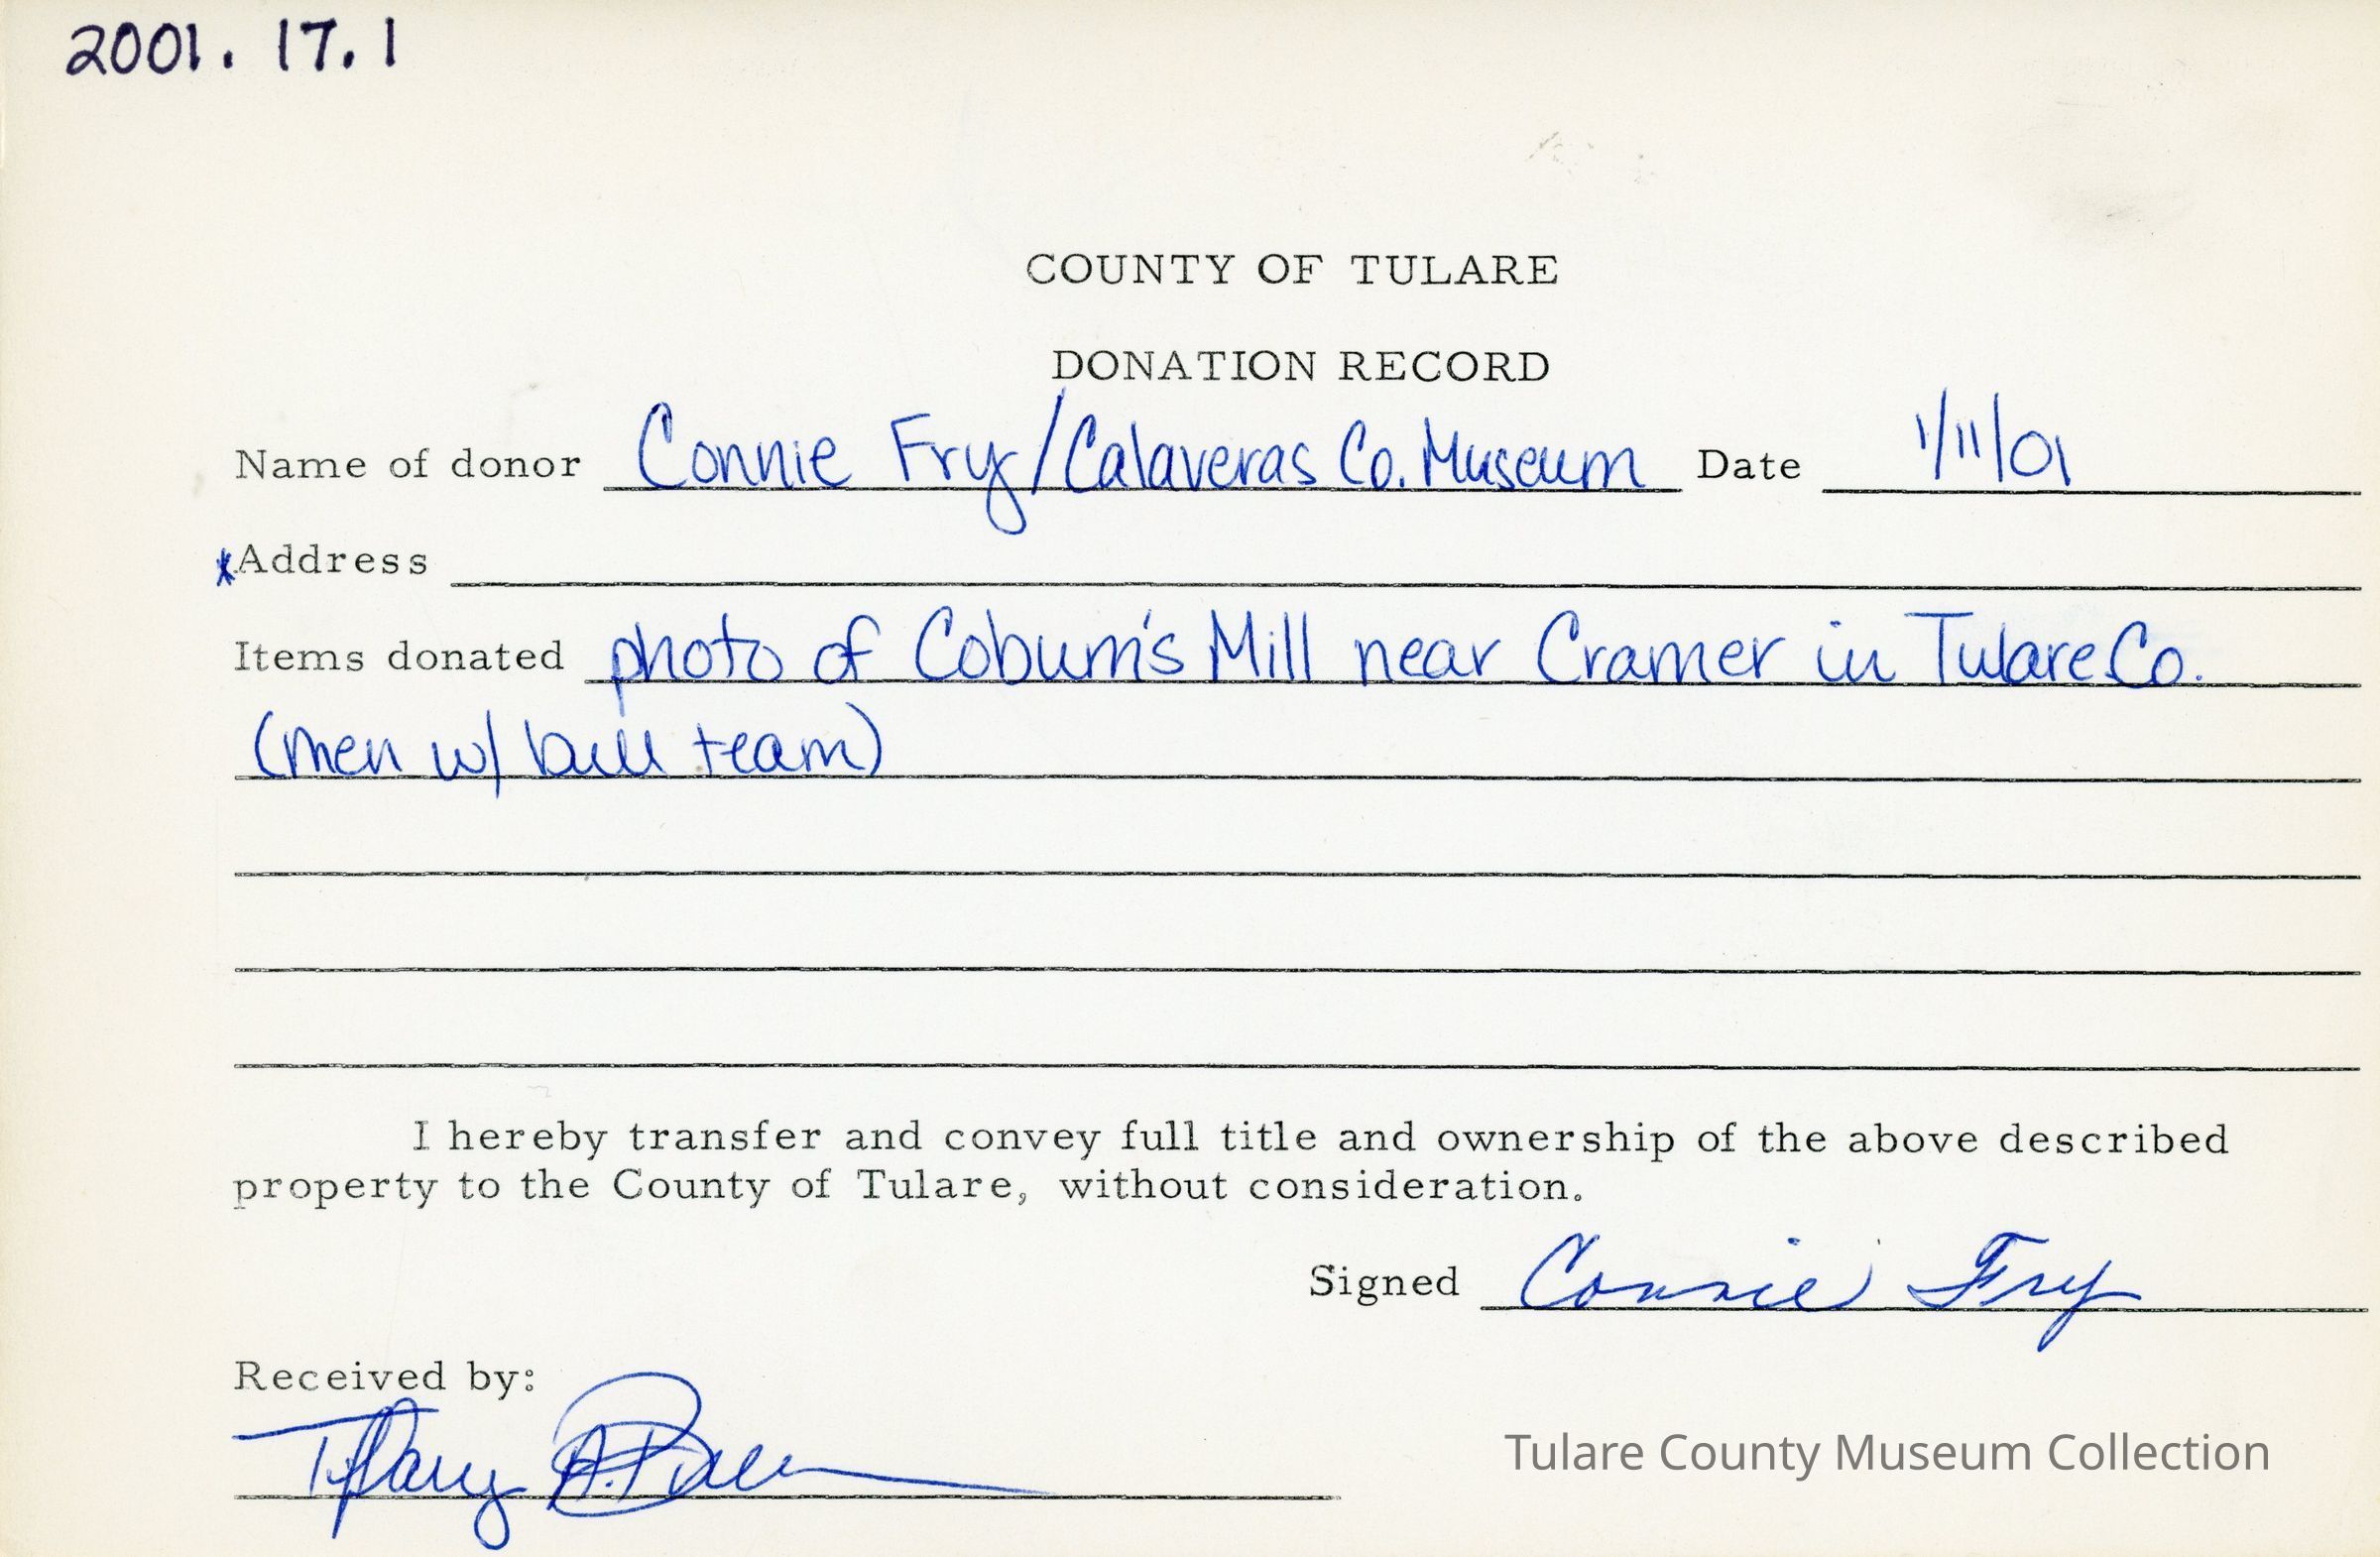 2001.17.1
COUNTY OF TULARE
DONATION RECORD
Name of donor Connie Fry/Calaveras Co. Museum Date 1/11/01
*Address
Items donated photo of Coburn's Mill near Cramer in Tulare Co.
(men w/ bull team)
I hereby transfer and convey full title and ownership of the above described
property to the County of Tulare, without consideration.
Signed Connie Fry
Received by:
Tiffany A.
Tulare County Museum Collection